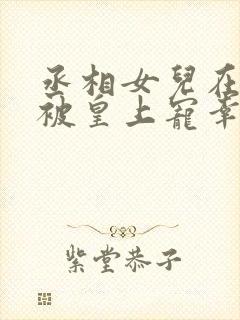 丞相女兒在
被皇上寵幸
紫堂恭子